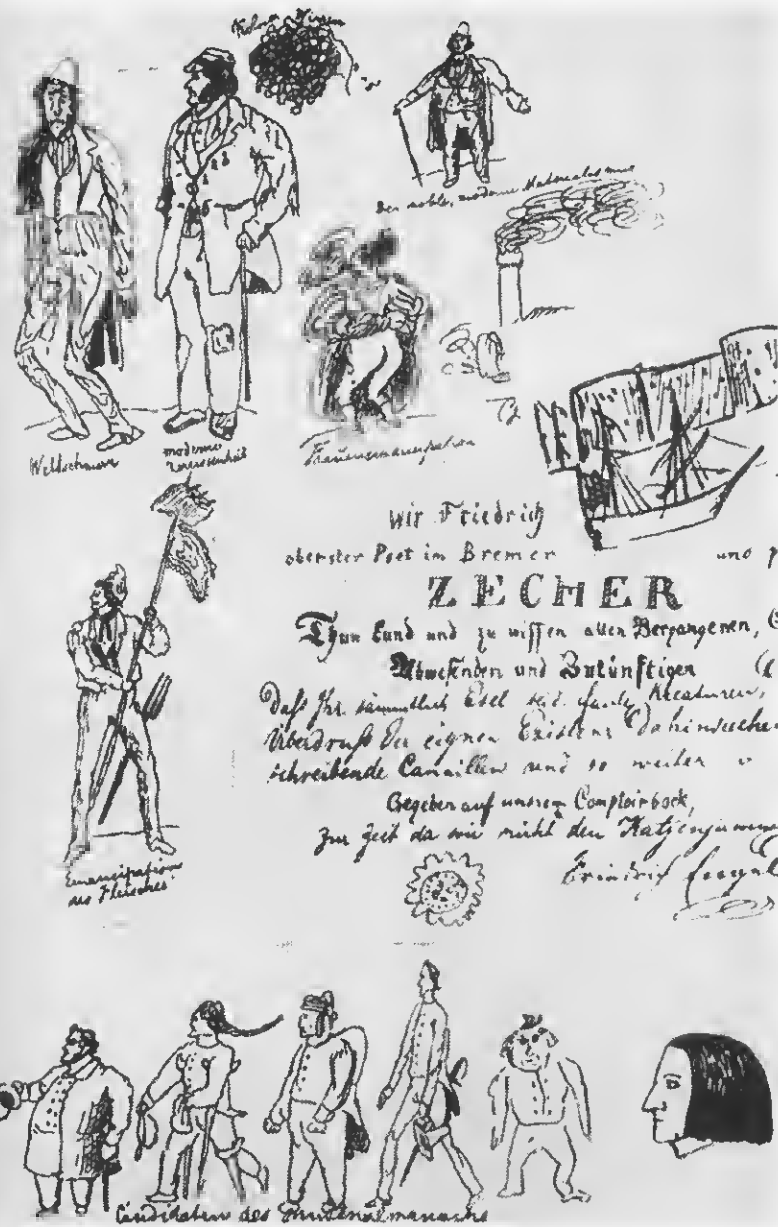 Der noble, moderne Materialismus
Weltschmerz
moderne
Zerrissenheit
Frauenemancipation
Wir Friedrich
oberster Poet im Bremer und
ZECHER
Thun kund und zu wissen allen Vergangenen,
Abwesenden und Zukünftigen
Daß Ihr sämmtlich Esel seid, faule Kreaturen,
Überdruß der eignen Existenz dahinsiechen
schreibende Canaillen und so weiter
Gegeben auf unserm Comptoirbock,
Zur Zeit da wir nicht den Katzenjammer
Friedrich Engels
Emancipation
des Fleisches
Candidaten des Musenalmanachs